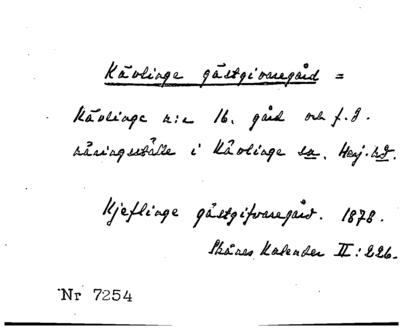 Kävlinge gästgivaregård =
Kävlinge n:r 16. gård och f.d.
näringsställe i Kävlinge sn. Harj. hd.
Kjeflinge gästgifvaregård. 1878.
Skånes Kalender II: 226.
Nr 7254